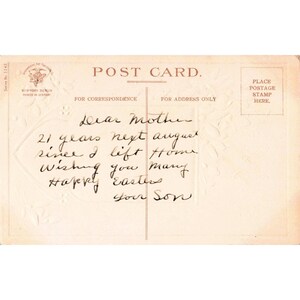 POST CARD.
PLACE
POSTAGE
STAMP
HERE.
FOR CORRESPONDENCE
FOR ADDRESS ONLY
Dear Mother
21 years next august
since I left Home
Wishing you Many
Happy Easters
Your Son